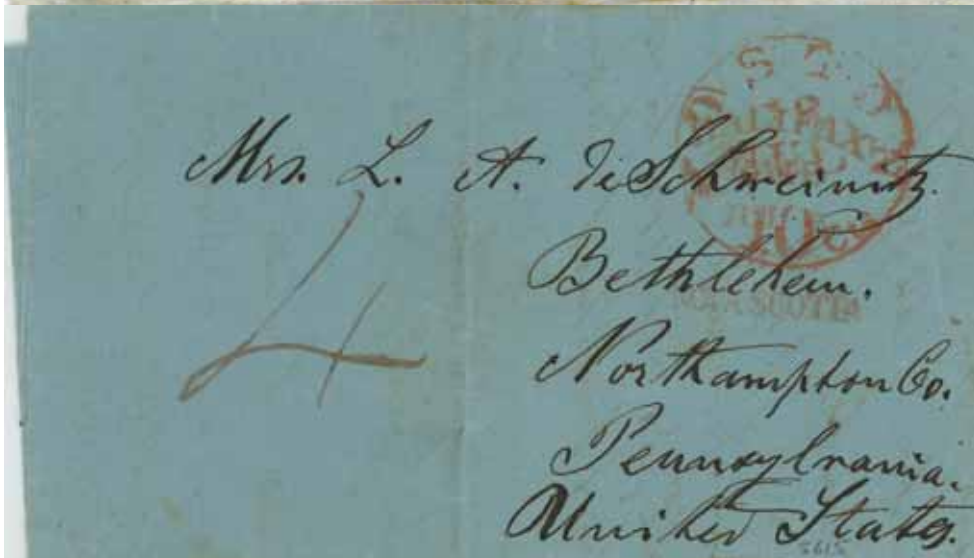 Mrs. L. A. de Schweinitz.
Bethlehem.
4
Northampton Co.
Pennsylvania.
United States.